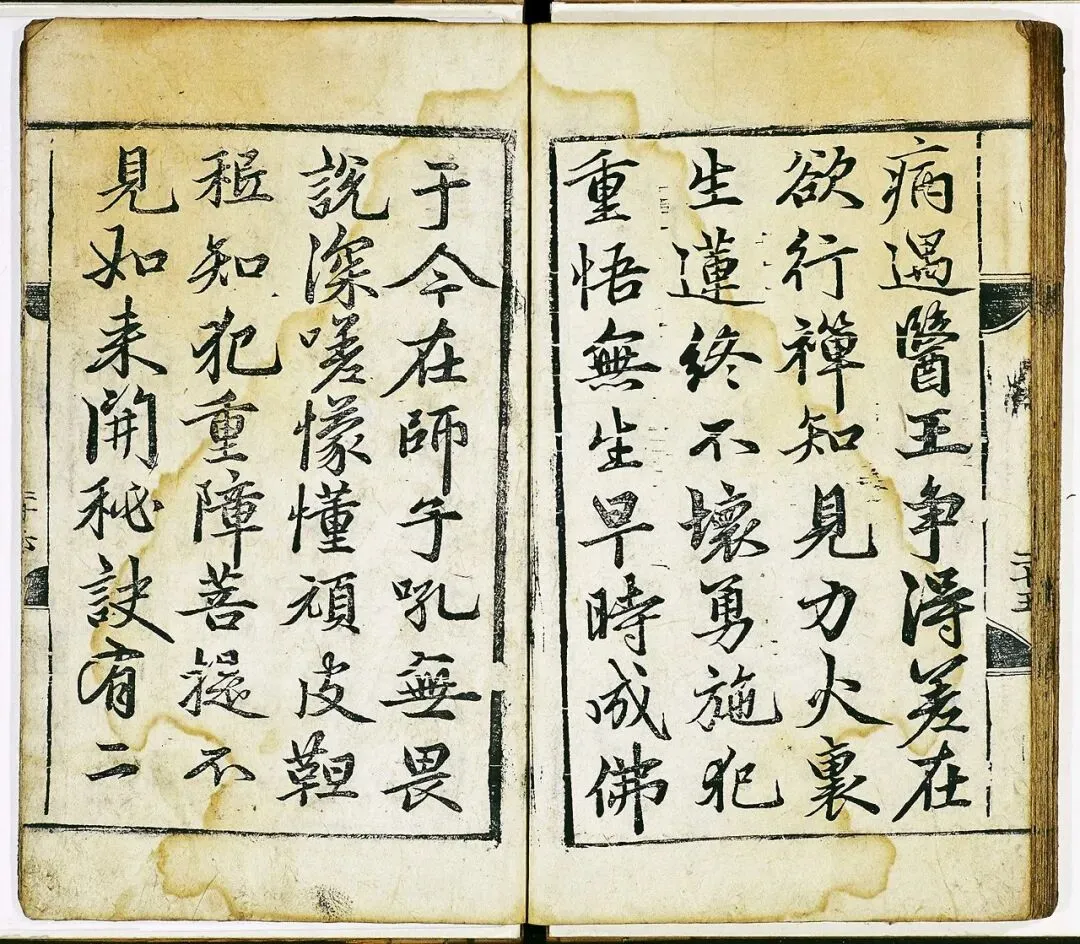 病遇醫王争得差在
欲行禪知見力火裏
生蓮終不壞勇施犯
重悟無生早時成佛
于今在師子吼無畏
説深嗟懞懂頑皮靼
秪知犯重障菩提不
見如来開秘訣有二
二十五